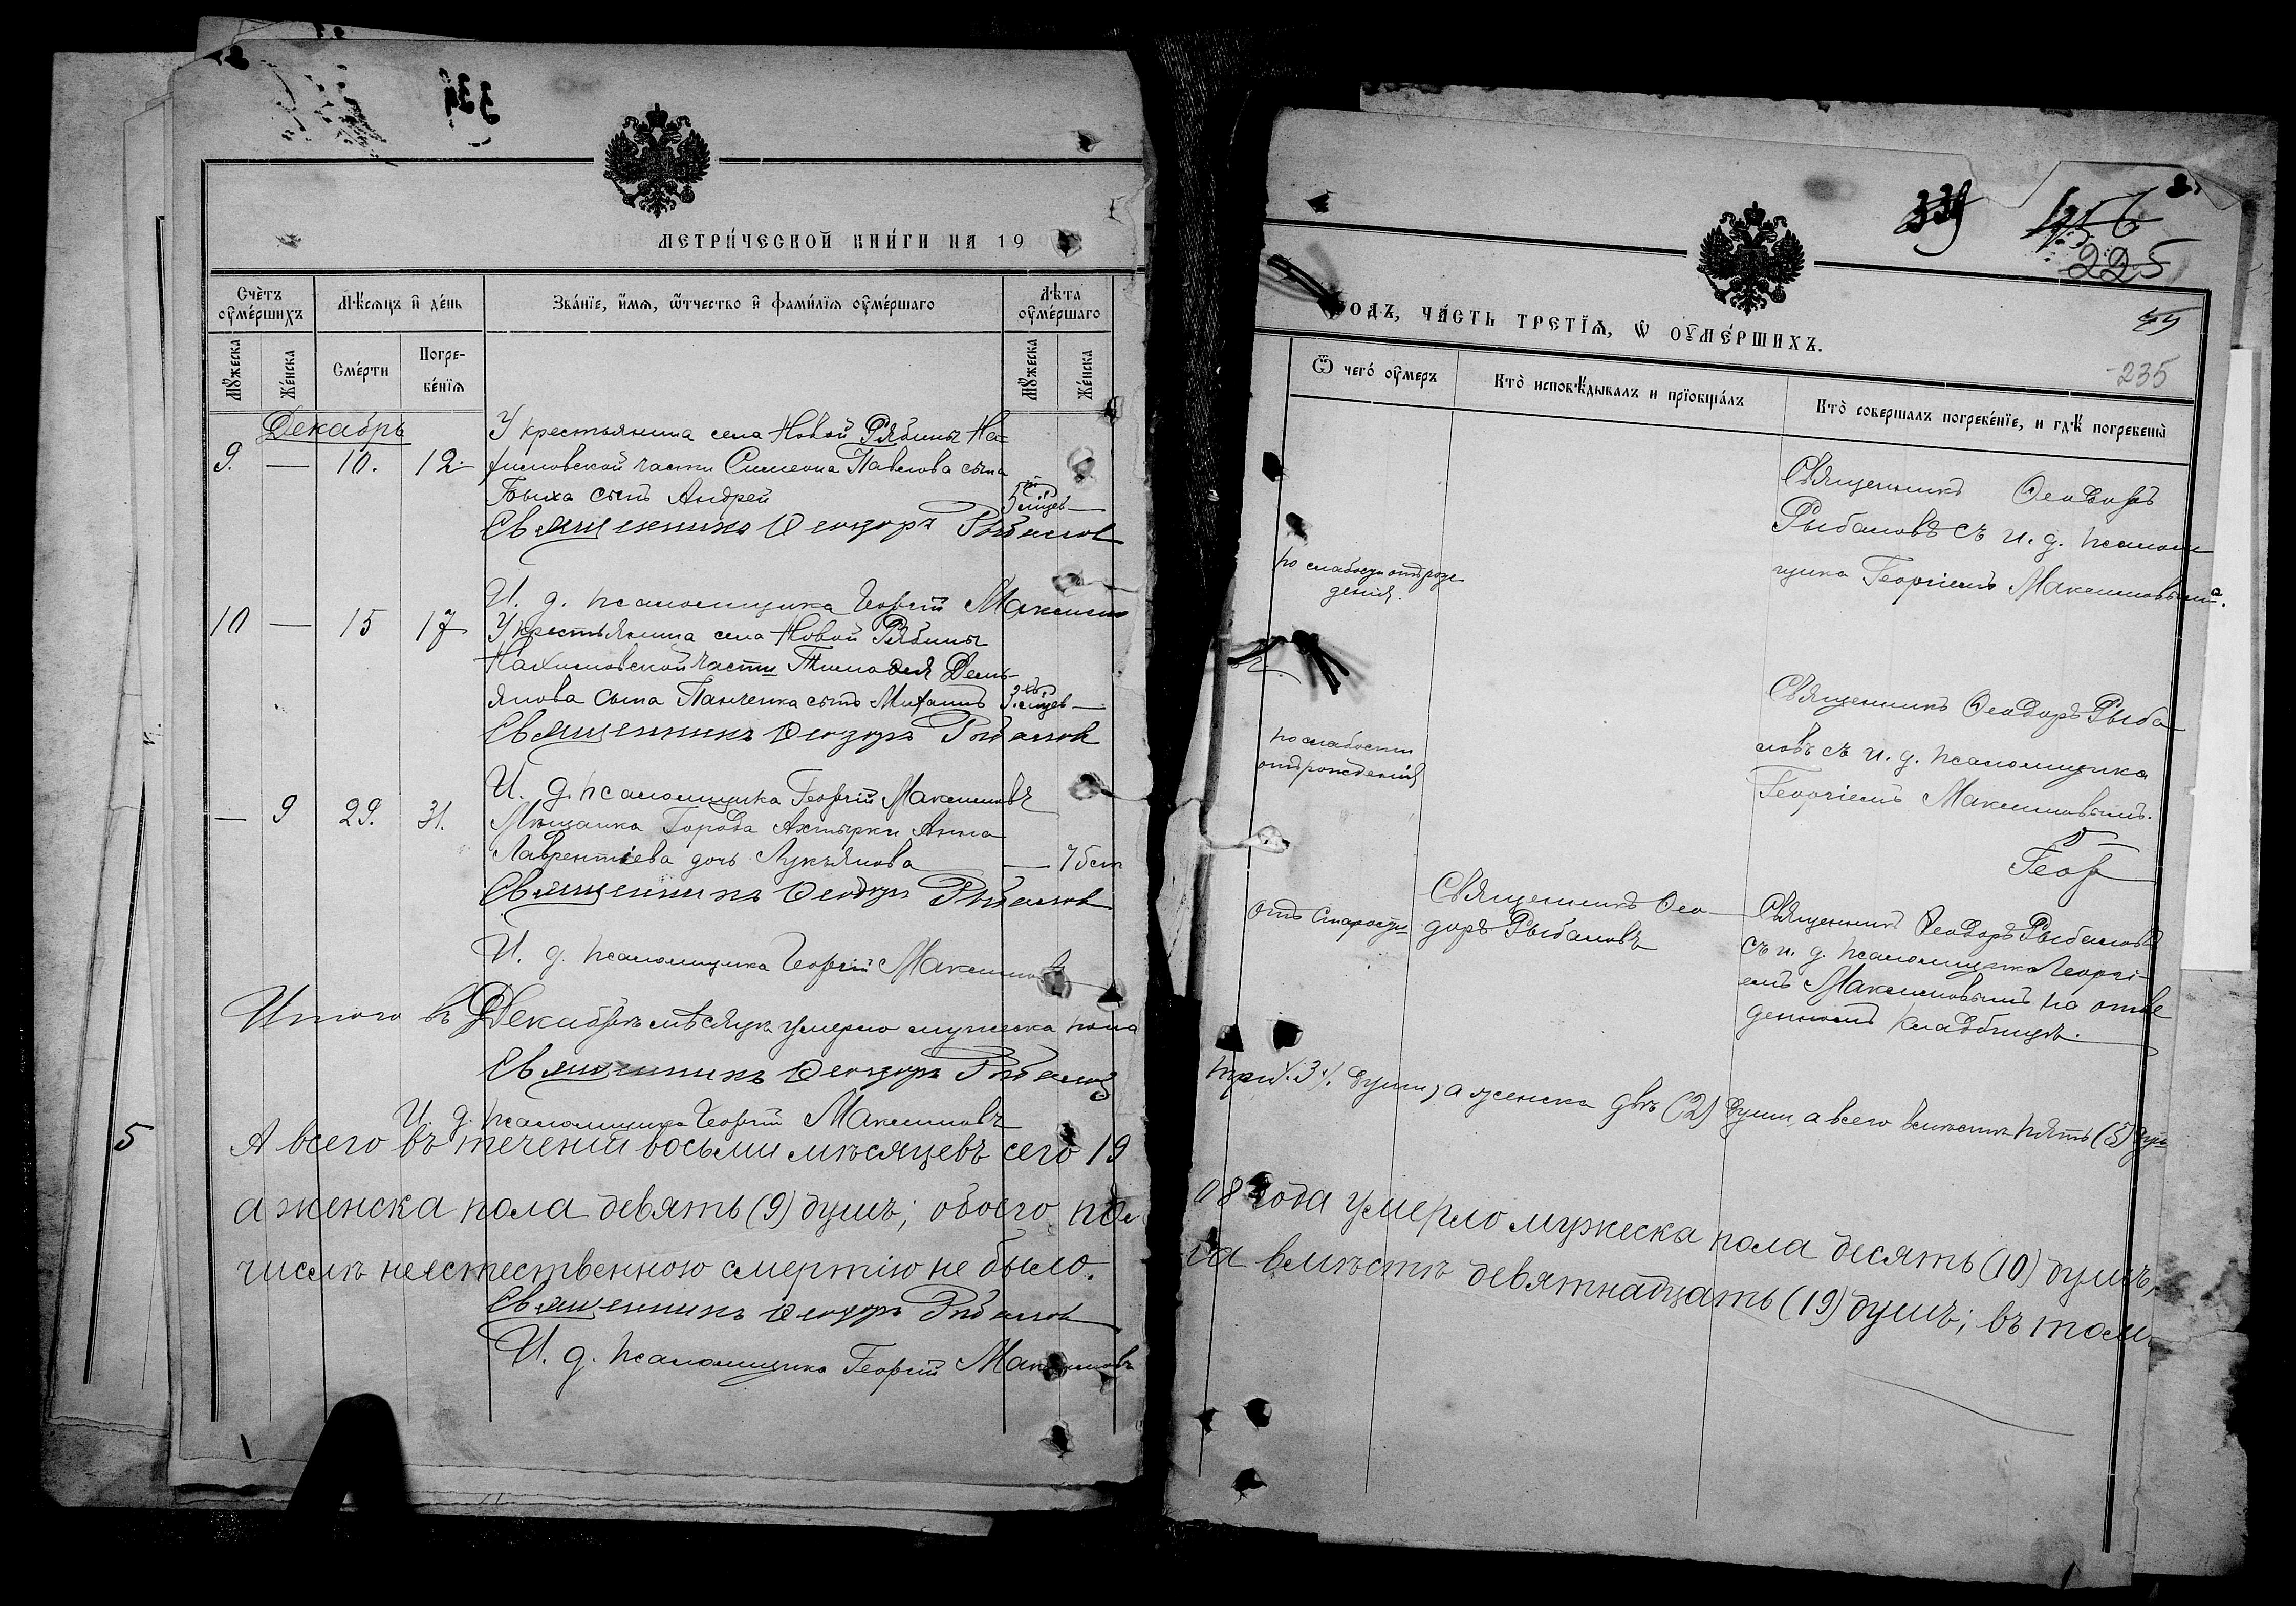 334
МЕТРИ́ЧЕСКОЙ КНИ́ГИ НА 19
Сче́тъ ѹме́ршихъ
Мѣ́сяцъ и де́нь
Зва́нїе, и́мѧ, ѿтчество и фами́лїѧ ѹме́ршаго
Лѣ́та ѹме́ршаго
Мѹ́жеска
Же́нска
Сме́рти
Погребе́нїѧ
Мѹ́жеска
Же́нска
Декабрь
9. — 10. 12.
У крестьянина села Новой Рябины На-
химовской части Симеона Павлова сына
сынъ Андрей
5 мцев —
Священникъ Ѳеодоръ Рыбалов
И. д. псаломщика Георгій Максимов
10 — 15 17
У крестьянина села Новой Рябины
Нахимовской части Тимоѳея Демь-
янова сына Панченка сынъ Михаилъ 3 мцев —
Священникъ Ѳеодоръ Рыбалов
И. д. псаломщика Георгій Максимовъ
— 9 29. 31.
Мѣщанка Города Ахтырки Анна
Лаврентіева дочь Лукьянова — 75 лѣт
Священникъ Ѳеодоръ Рыбалов
И. д. псаломщика Георгій Максимов
Итого въ Декабрѣ мѣсяцѣ умерло мужеска пола
Священникъ Ѳеодоръ Рыбалов
И. д. псаломщика Георгій Максимовъ
А всего въ теченіи восьми мѣсяцевъ сего 19
а женска пола девять (9) душъ; обоего по
числѣ неестественною смертію не было.
Священникъ Ѳеодоръ Рыбалов
И. д. псаломщика Георгій Максимовъ
5
339
456
225
235
ГОДЪ, ЧА́СТЬ ТРЕТЇѦ, Ѡ ОУМЕ́РШИХЪ.
Ѿ чего́ ѹме́ръ
Кто̀ исповѣ́дывалъ и прїобща́лъ
Кто̀ соверша́лъ погребе́нїе, и гдѣ̀ погребены̀
по слабости отъ рож
денія.
Священникъ Ѳеодоръ
Рыбаловъ съ и. д. псалом
щика Георгіемъ Максимовымъ.
по слабости
отъ рожденія
Священникъ Ѳеодоръ Рыба
ловъ съ и. д. псаломщика
Георгіемъ Максимовымъ.
Геор
отъ старости
Священникъ Ѳео-
доръ Рыбаловъ
Священникъ Ѳеодоръ Рыбаловъ
съ и. д. псаломщика Георгі-
емъ Максимовымъ на отве
денномъ кладбищѣ.
три /.3./. души, а женска двѣ (2) души, а всего вмѣстѣ пять (5) душ
08 года умерло мужеска пола десять (10) душъ,
ла вмѣстѣ девятнадцать (19) душъ; въ том